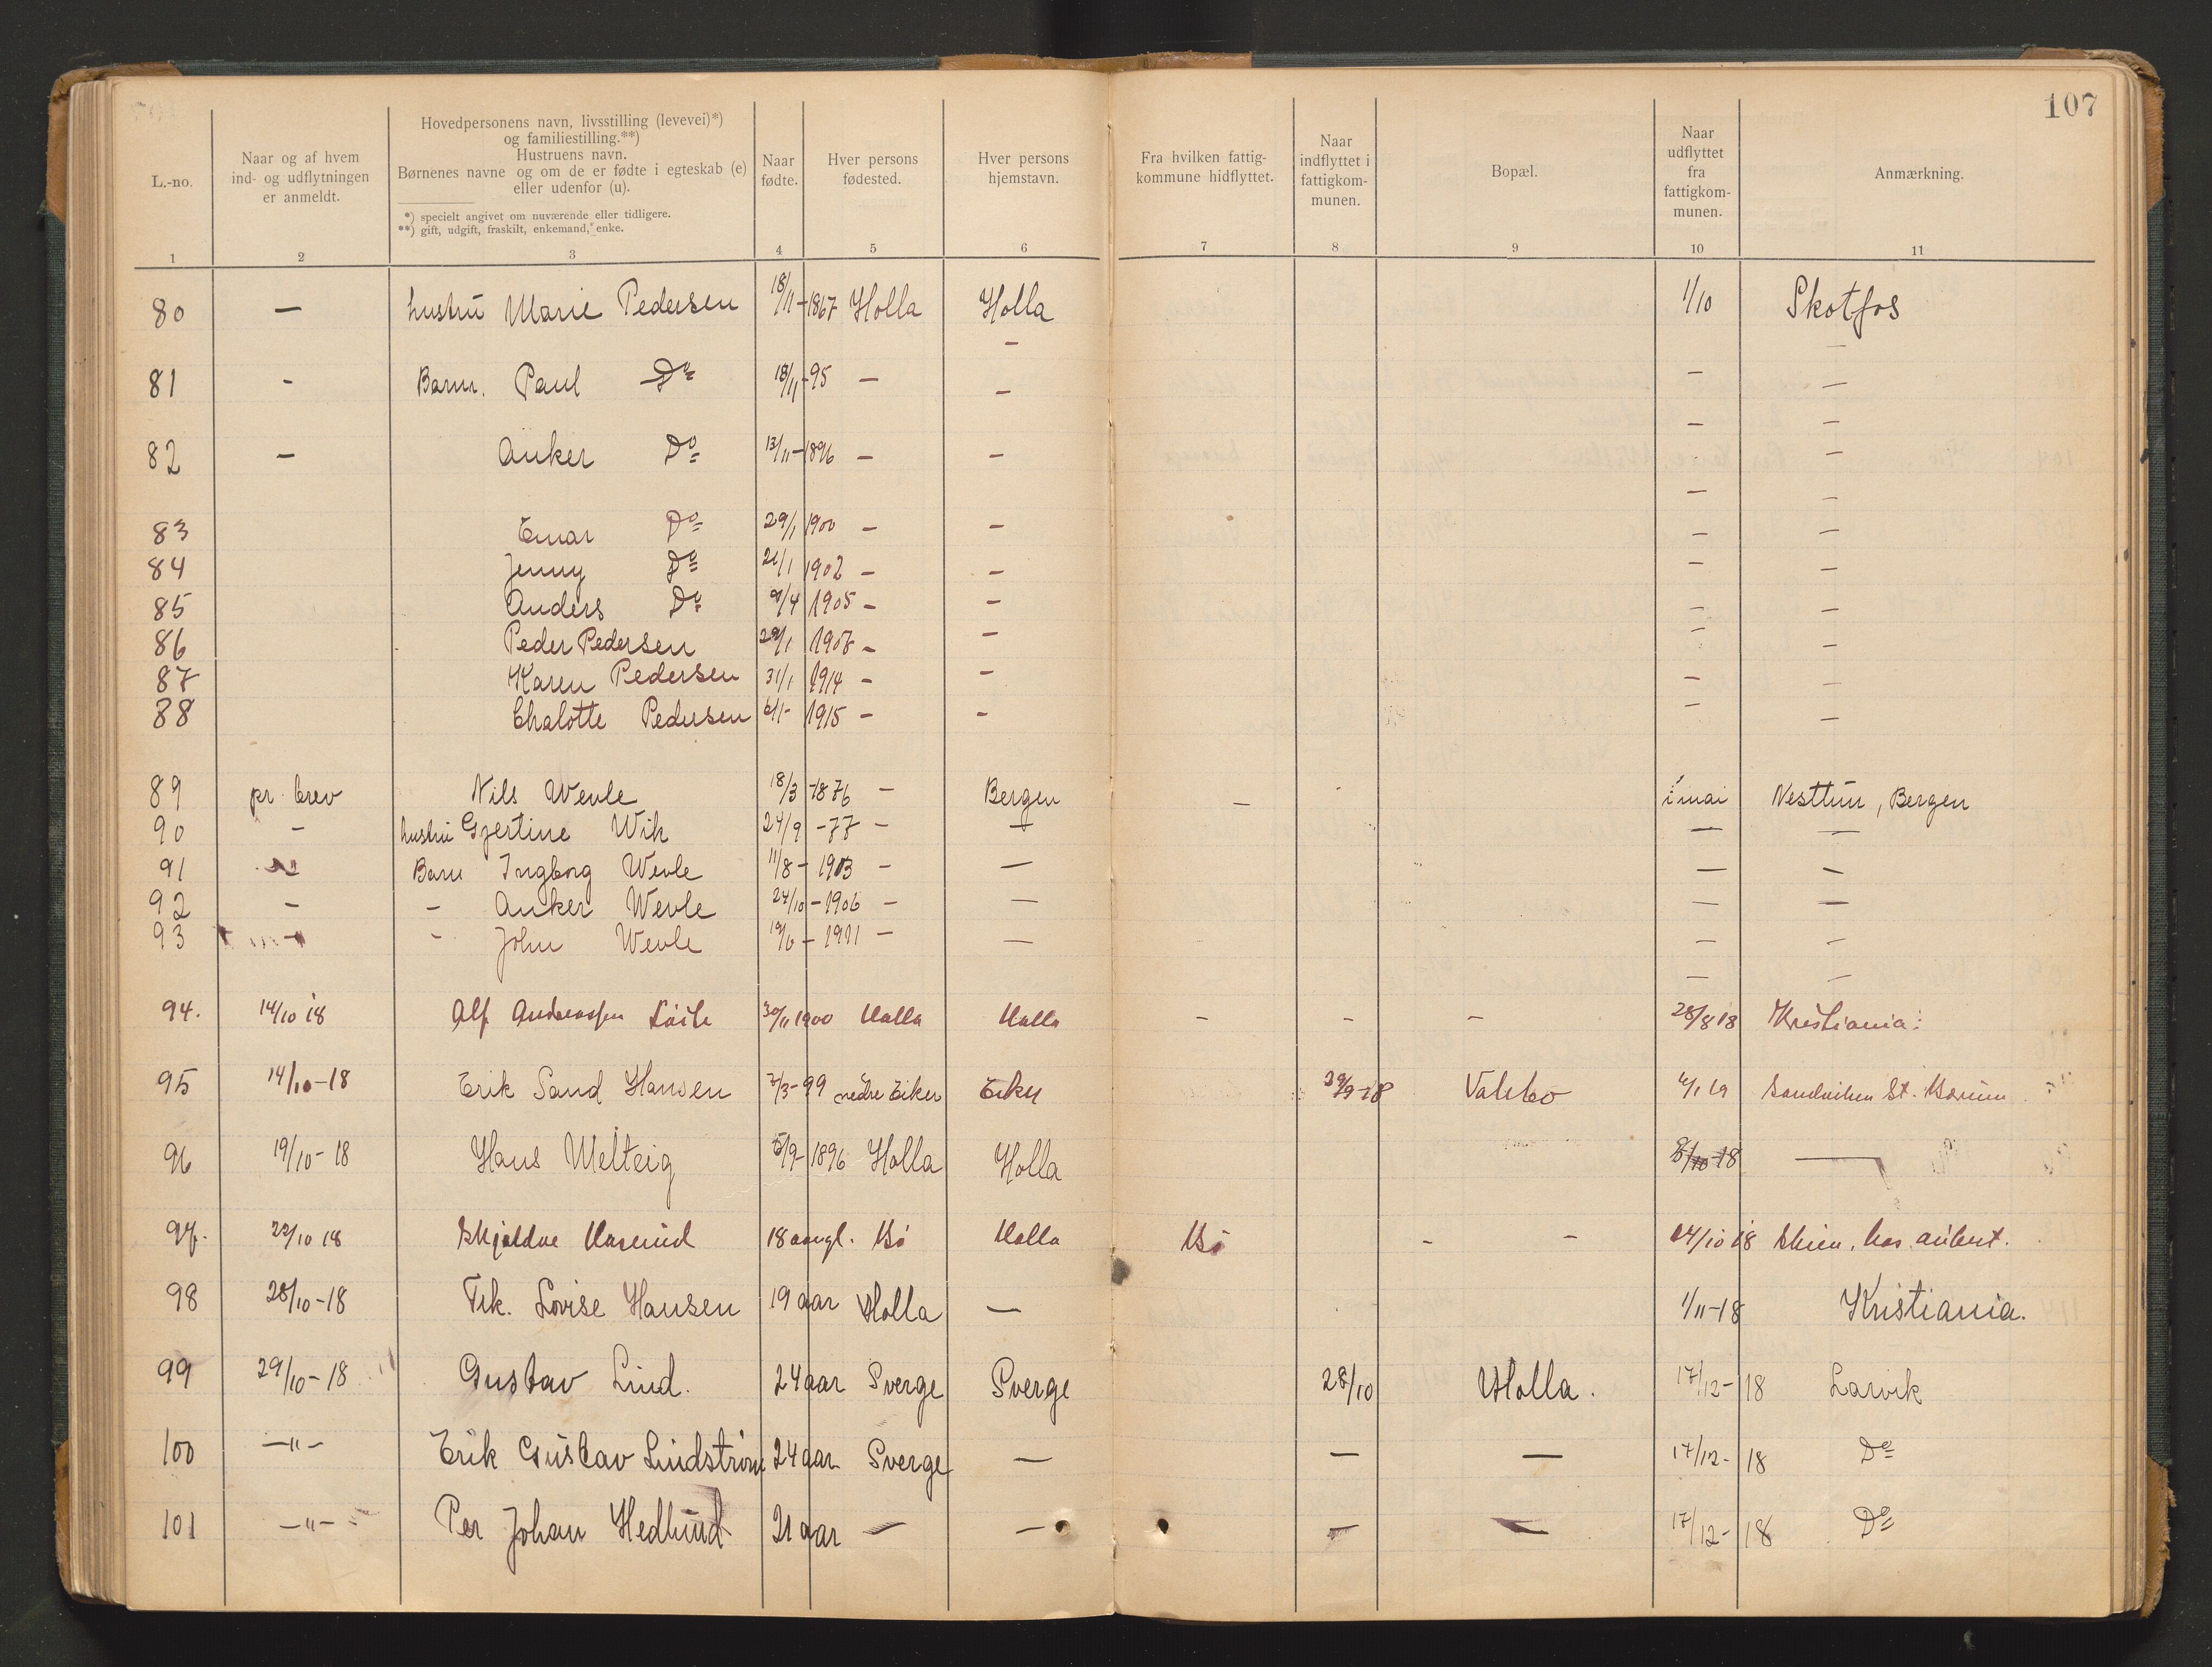 107
L.-no.
Naar og af hvem
ind- og udflytningen
er anmeldt.
Hovedpersonens navn, livsstilling (levevei)*)
og familiestilling.**)
Hustruens navn.
Børnenes navne og om de er fødte i egteskab (e)
eller udenfor (u).
*) specielt angivet om nuværende eller tidligere.
**) gift, udgift, fraskilt, enkemand, enke.
Naar
fødte.
Hver persons
fødested.
Hver persons
hjemstavn.
Fra hvilken fattig-
kommune hidflyttet.
Naar
indflyttet i
fattigkom-
munen.
Bopæl.
Naar
udflyttet
fra
fattigkom-
munen.
Anmærkning.
1 2 3 4 5 6 7 8 9 10 11
80 — hustru Marie Pedersen 18/11-1867 Holla Holla 1/10 Skotfos
81 - Barn. Paul Do 18/11-95 — — — —
82 — Anker Do 13/11-1896 — — — —
83 Einar Do 29/1 1900 — — — —
84 Jenny Do 21/1 1902 — — — —
85 Anders Do 9/4 1905 — — — —
86 Peder Pedersen 29/1 1908 — — — —
87 Karen Pedersen 31/1 1914 — — — —
88 Chalotte Pedersen 6/11- 1915 — — — —
89 pr. brev Nils Wevle 18/3-1876 — Bergen — i mai Nesttun, Bergen
90 — hustru Gjertine Wik 24/9 -77 — — — —
91 -"- Barn Ingborg Wevle 11/8 - 1903 — — — —
92 — - Anker Wevle 24/10 - 1906 — — — —
93 — - John Wevle 19/6 - 1911 — — — —
94. 14/10 18 Alf Andreassen 30/11 1900 Holla Holla - - - 28/8 18 Kristiania.
95 14/10-18 Erik Sand Hansen 7/3-99 nedre Eiker Eiker 29/9-18 Valebø 4/1 19 Sandviken St. Bærum
96 19/10-18 Hans Melteig 5/9-1896 Holla Holla 8/10-18 —
97. 22/10 18 18 aargl. Bø Holla Bø - - 24/10 18 Skien, hos
98 28/10-18 Frk. Lovise Hansen 19 aar Holla — 1/11-18 Kristiania.
99 29/10-18 Gustav Lind. 24 aar Sverge Sverge 28/10 Holla. 17/12-18 Larvik
100 —"— Erik Gustav Lindstrøm 24 aar Sverge — — — 17/12-18 Do
101 —"— Per Johan Hedlund 21 aar — — — — 17/12-18 Do